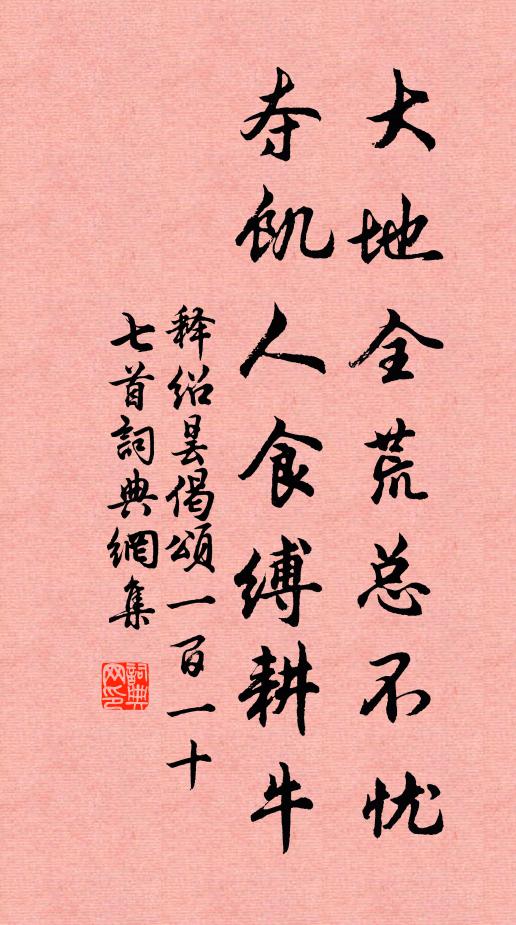 大地全荒总不忧
夺飢人食缚耕牛
释绍昙偈颂一百一十
七首詞典網集
詞典网印